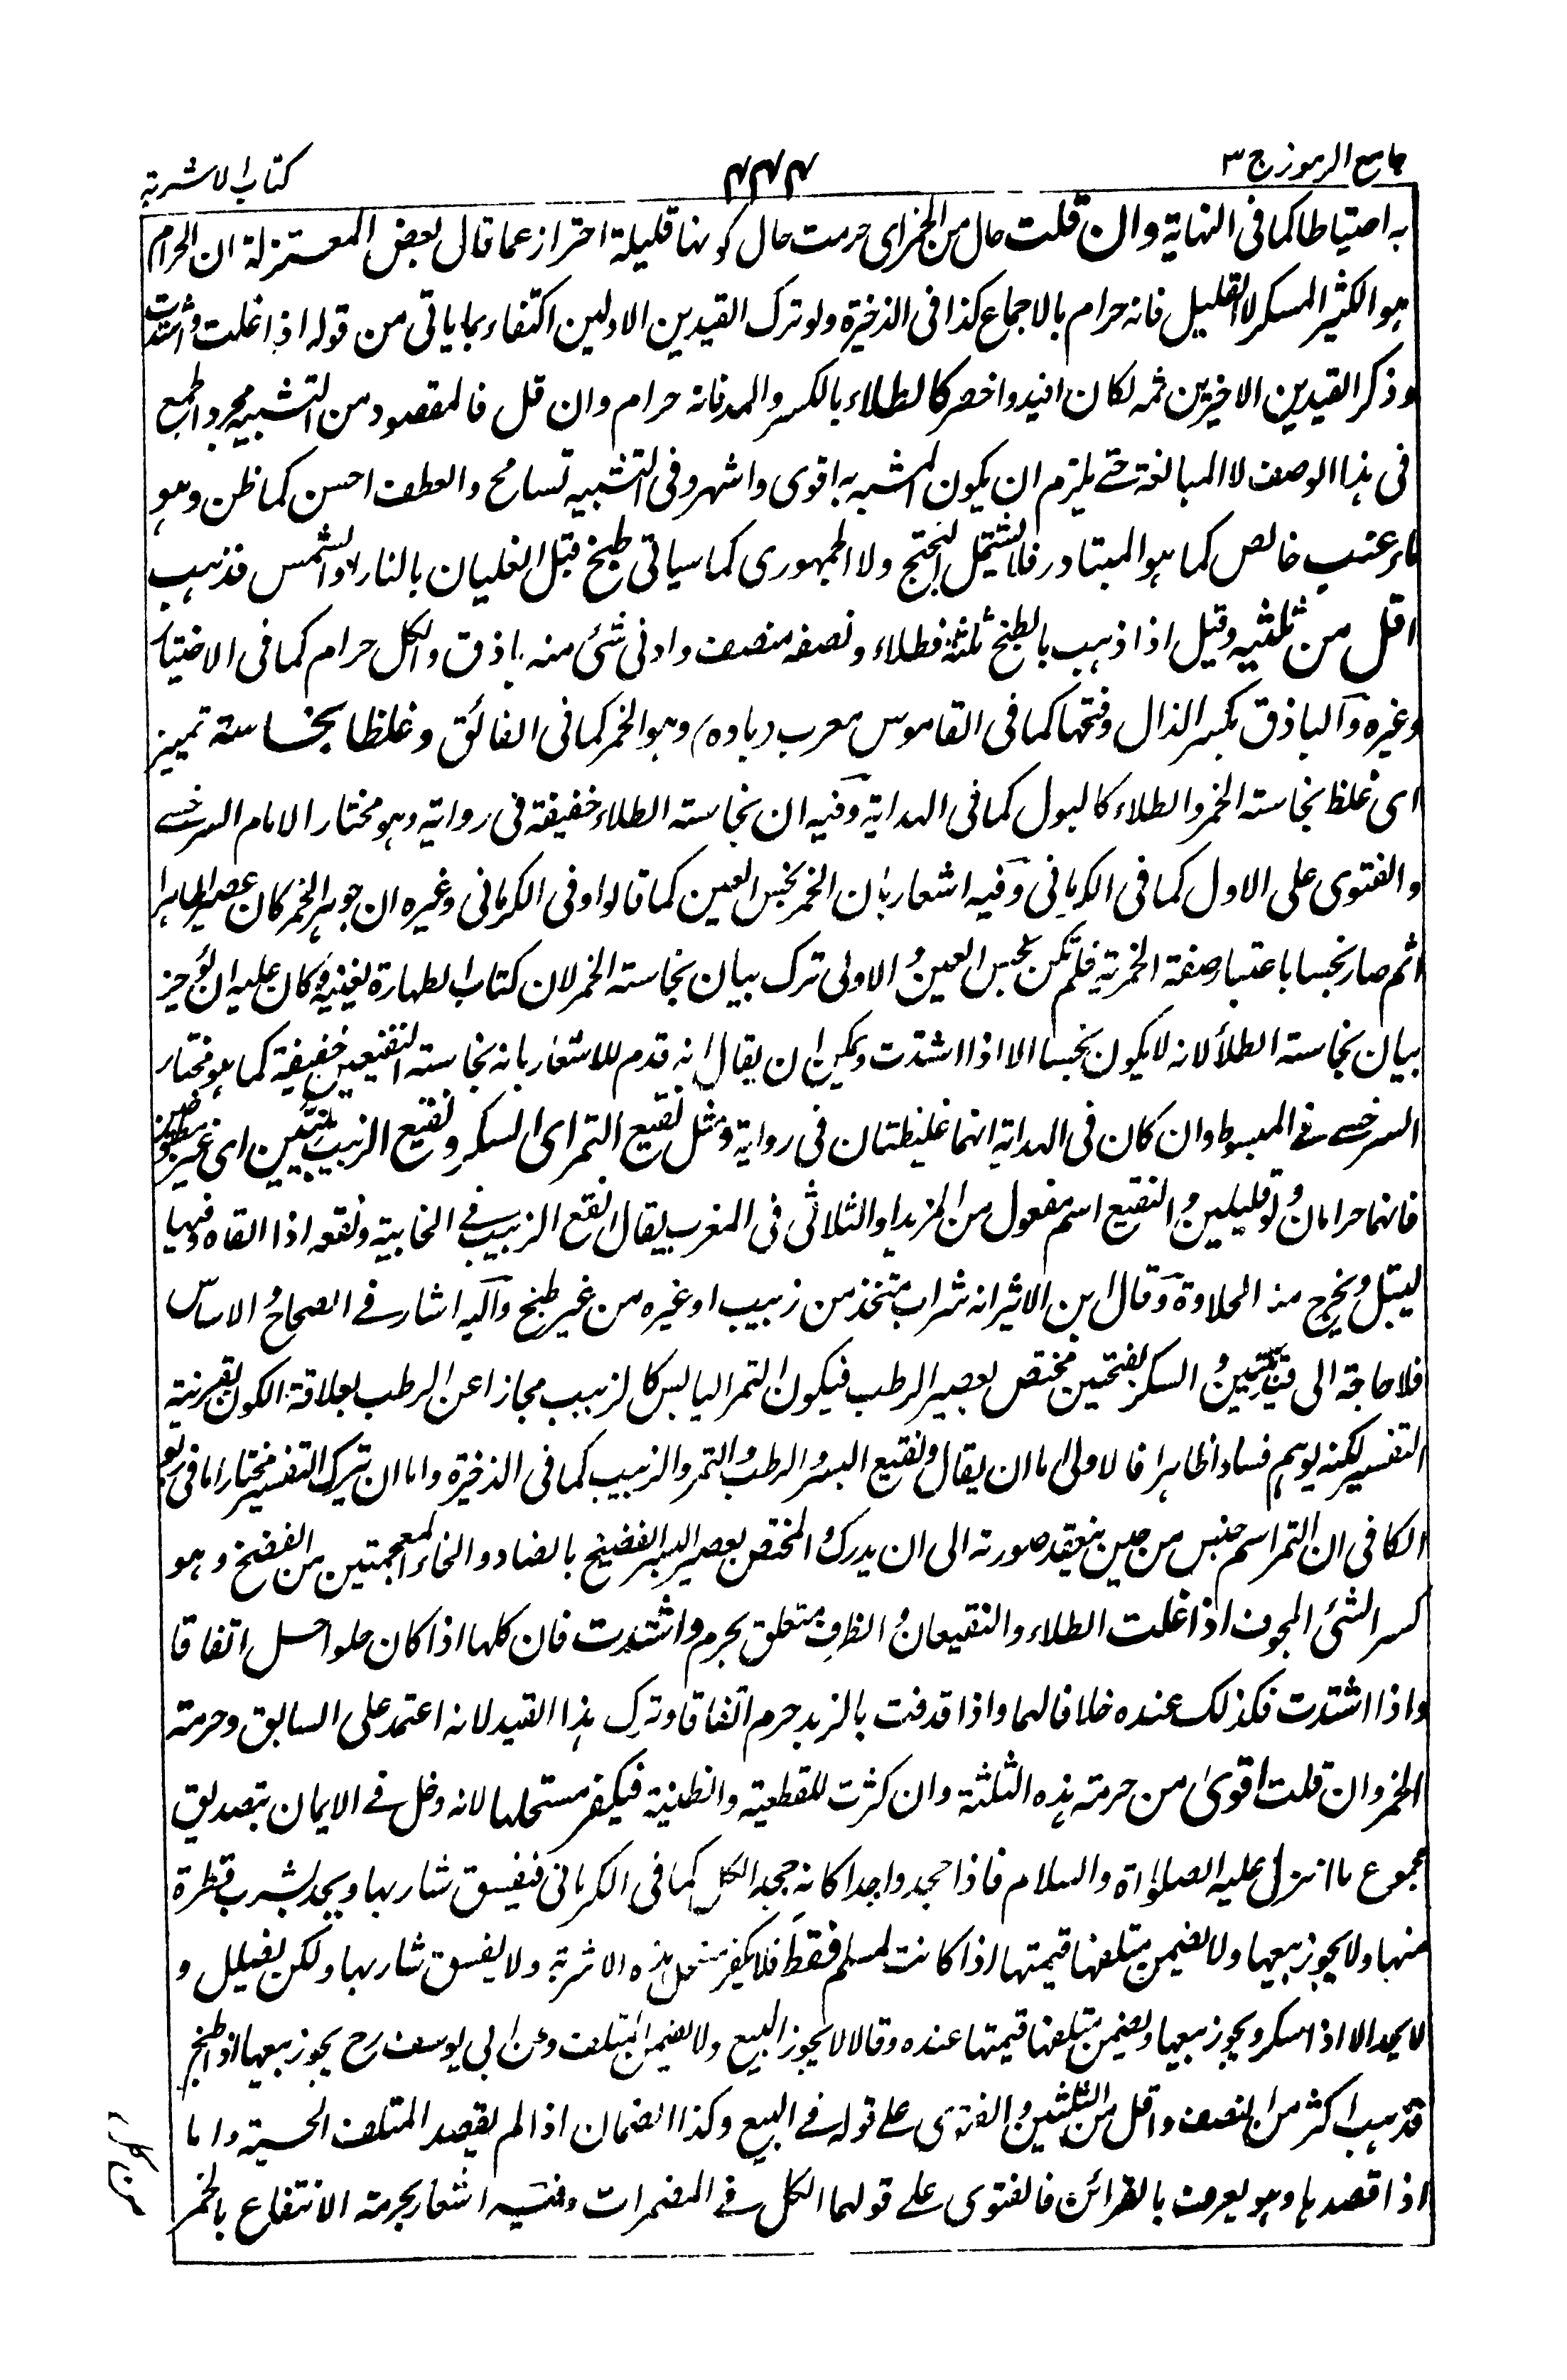 جامع الرموز ج ٣
٤٤٤
كتاب الاشربة
به احتياطا كما فى النهاية وان قلت حال من الخمر اى حرمت حال كونها قليلة احتراز عما قال بعض المعتزلة ان الحرام
هو الكثير المسكر لا القليل فانه حرام بالاجماع كذا فى الذخيرة ولو ترك القيدين الاولين اكتفاء بما ياتى من قوله اذا غلت واشتدت
وذكر القيدين الاخيرين ثمه لكان افيد واخصر كالطلاء بالكسر والمد فانه حرام وان قل فالمقصود من التشبيه مجرد الجمع
فى هذا الوصف لا المبالغة حتى يلزم ان يكون المشبه به اقوى واشهر وفى التشبيه تسامح والعطف احسن كما ظن وهو
ماء عنب خالص كما هو المتبادر فلا يشتمل البختج ولا الجمهورى كما سياتى طبخ قبل الغليان بالنار او الشمس فذهب
اقل من ثلثيه وقيل اذا ذهب بالطبخ ثلثه فطلاء ونصفه منصف وادنى شئ منه باذق والكل حرام كما فى الاختيار
وغيره والباذق بكسر الذال وفتحها كما فى القاموس معرب (باده) وهو الخمر كما فى الفائق وغلظا نجاسة تمييز
اى غلظ نجاسة الخمر والطلاء كالبول كما فى الهداية وفيه ان نجاسة الطلاء خفيفة فى رواية وهو مختار الامام السرخسى
والفتوى على الاول كما فى الكرمانى وفيه اشعار بان الخمر نجس العين كما قالوا وفى الكرمانى وغيره ان جوهر الخمر كان عصيرا طاهرا
ثم صار نجسا باعتبار صفة الخمرية فلم تكن نجس العين و الاولى ترك بيان نجاسة الخمر لان كتاب الطهارة يغنيه و كان عليه ان يؤخر
بيان نجاسة الطلأ لانه لا يكون نجسا الا اذا اشتدت ويمكن ان يقال انه قدم للاشعار بانه نجاسة النقيعين خفيفة كما هو مختار
السرخسى فى المبسوط وان كان فى الهداية انهما غليظتان فى رواية ومثل نقيع التمر اى السكر ونقيع الزبيب نيّين اى غير مطبوخين
فانهما حرامان و لو قليلين و النقيع اسم مفعول من المزيد او الثلاثى فى المغرب يقال انقع الزبيب فى الخابية ونقعه اذا القاه فيها
ليبتل ويخرج منه الحلاوة وقال ابن الاثير انه شراب متخذ من زبيب او غيره من غير طبخ واليه اشار فى الصحاح و الاساس
فلا حاجة الى نيّين و السكر بفتحتين مختص بعصير الرطب فيكون التمر اليابس كالزبيب مجازا عن الرطب بعلاقة الكون بقرينة
التفسير لكنه يوهم فسادا ظاهرا فالاولى اما ان يقال ونقيع البسر و الرطب و التمر والزبيب كما فى الذخيرة واما ان يترك التفسير مختارا ما فى
الكافى ان التمر اسم جنس من حين ينعقد صورته الى ان يدرك و المختص بعصير البسر الفضيخ بالضاد والخاء المعجمتين من الفضخ وهو
كسر الشئ المجوف اذا غلت الطلاء والنقيعان و الظرف متعلق بحرم واشتدت فان كلها اذا كان حلوا حل اتفاقا
واذا اشتدت فكذلك عنده خلافا لهما واذا قدفت بالزبد حرم اتفاقا وترك هذا القيد لانه اعتمد على السابق وحرمة
الخمر وان قلت اقوى من حرمة هذه الثلثة وان كثرت للقطعية والظنية فيكفر مستحلها لانه دخل فى الايمان بتصديق
مجموع ما انزل عليه الصلوة والسلام فاذا جحد واحدا كانه جحد الكل كما فى الكرمانى فيفسق شاربها ويحد بشرب قطرة
منها ولا يجوز بيعها ولا يضمن متلفها قيمتها اذا كانت لمسلم فقط فلا يكفر مستحل هذه الاشربة ولا يفسق شاربها ولكن يضلل و
لا يحد الا اذا سكر ويجوز بيعها ويضمن متلفها قيمتها عنده وقالا لا يجوز البيع ولا يضمن المتلف وعن ابى يوسف رح يجوز بيعها اذا طبخ
فذهب اكثر من النصف واقل من الثلثين و الفتوى على قوله فى البيع وكذا الضمان اذا لم يقصد المتلف الحسبة واما
اذا قصدها وهو يعرف بالقرائن فالفتوى على قولهما الكل فى المضمرات وفيه اشعار بحرمة الانتفاع بالخمر